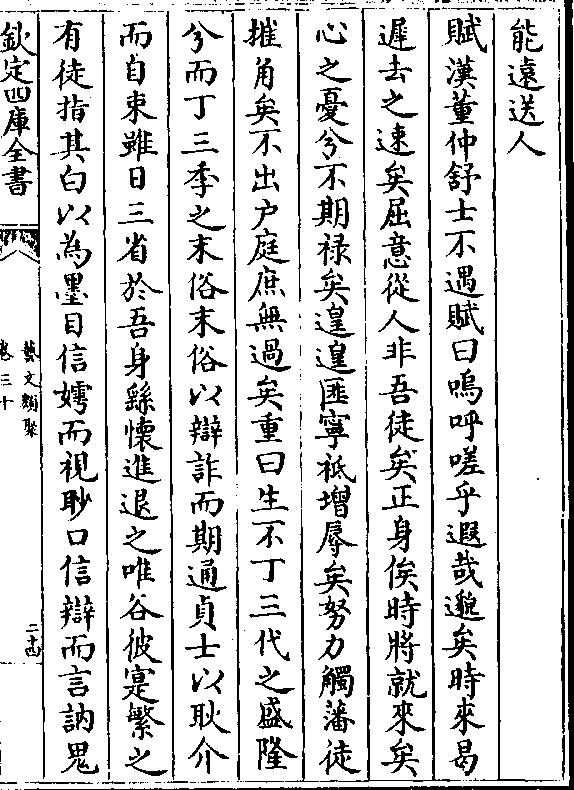 能遠送人
賦漢董仲舒士不遇賦曰嗚呼嗟乎遐哉邈矣時來曷
遲去之速矣屈意從人非吾徒矣正身俟時將就來矣
心之憂兮不期祿矣遑遑匪寧祗增辱矣努力觸藩徒
摧角矣不出户庭庶無過矣重曰生不丁三代之盛隆
兮而丁三季之末俗末俗以辯詐而期通貞士以耿介
而自束雖日三省於吾身繇懷進退之唯谷彼寔繁之
有徒指其白以為墨目信嫮而視眇口信辯而言訥鬼
欽定四庫全書
藝文類聚
卷三十
二十四